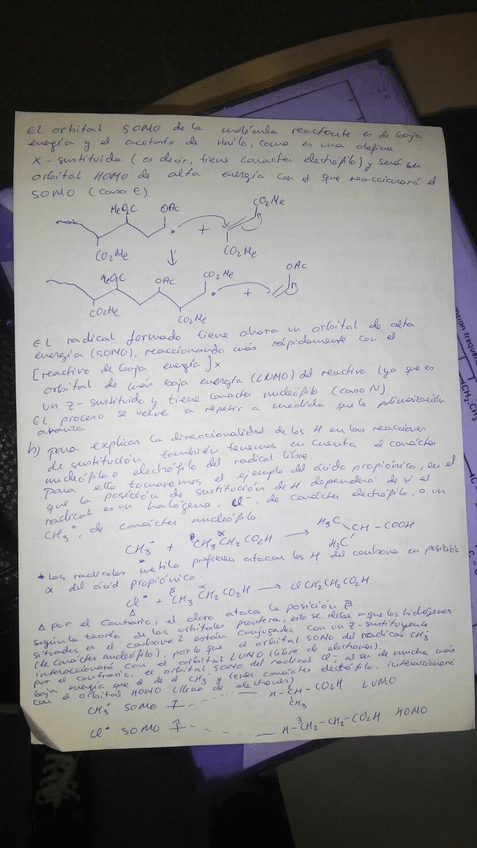 El orbital SOMO de la molécula reactante es de baja
energía y el acetato de vinilo, como es una olefina
X-sustituida (es decir, tiene carácter electrófilo) y será su
orbital HOMO de alta energía con el que reaccionará el
SOMO (caso E).
MeO₂C OAc CO₂Me
+
CO₂Me CO₂Me
MeO₂C OAc CO₂Me OAc
+
CO₂Me CO₂Me
El radical formado tiene ahora un orbital de alta
energía (SOMO), reaccionando más rápidamente con el
[reactivo de baja energía]x
orbital de más baja energía (LUMO) del reactivo (ya que es
un Z-sustituido y tiene carácter nucleófilo (caso N)
El proceso se vuelve a repetir a medida que la polimerización
avanza
b) para explicar la direccionalidad de los H en las reacciones
de sustitución también tenemos en cuenta el carácter
nucleófilo o electrófilo del radical libre.
Para ello tomaremos el ejemplo del ácido propiónico, en el
que la posición de sustitución de H dependerá de si el
radical es un halógeno, Cl•, de carácter electrófilo, o un
CH₃•, de carácter nucleófilo.
CH₃• + CH₃CH₂CO₂H → H₃C CH-COOH
β α H₃C
* Los radicales metilo prefieren atacar los H del carbono en posición
α del ácido propiónico.
Cl• + CH₃CH₂CO₂H → ClCH₂CH₂CO₂H.
β α
Δ Por el contrario, el cloro ataca la posición β
según la teoría de los orbitales frontera, esto se debe a que los hidrógenos
situados en el carbono 2 están conjugados con un Z-sustituyente
(de carácter nucleófilo), por lo que el orbital SOMO del radical CH₃•
interaccionará con el orbital LUMO (libre de electrones)
por el contrario, el orbital SOMO del radical Cl•, al ser de mucha más
baja energía que el de el CH₃ y tener carácter electrófilo, interaccionará
con el orbital HOMO (lleno de electrones).
CH₃• SOMO H-CH-CO₂H LUMO
CH₃
Cl• SOMO H-CH₂-CH₂-CO₂H HOMO